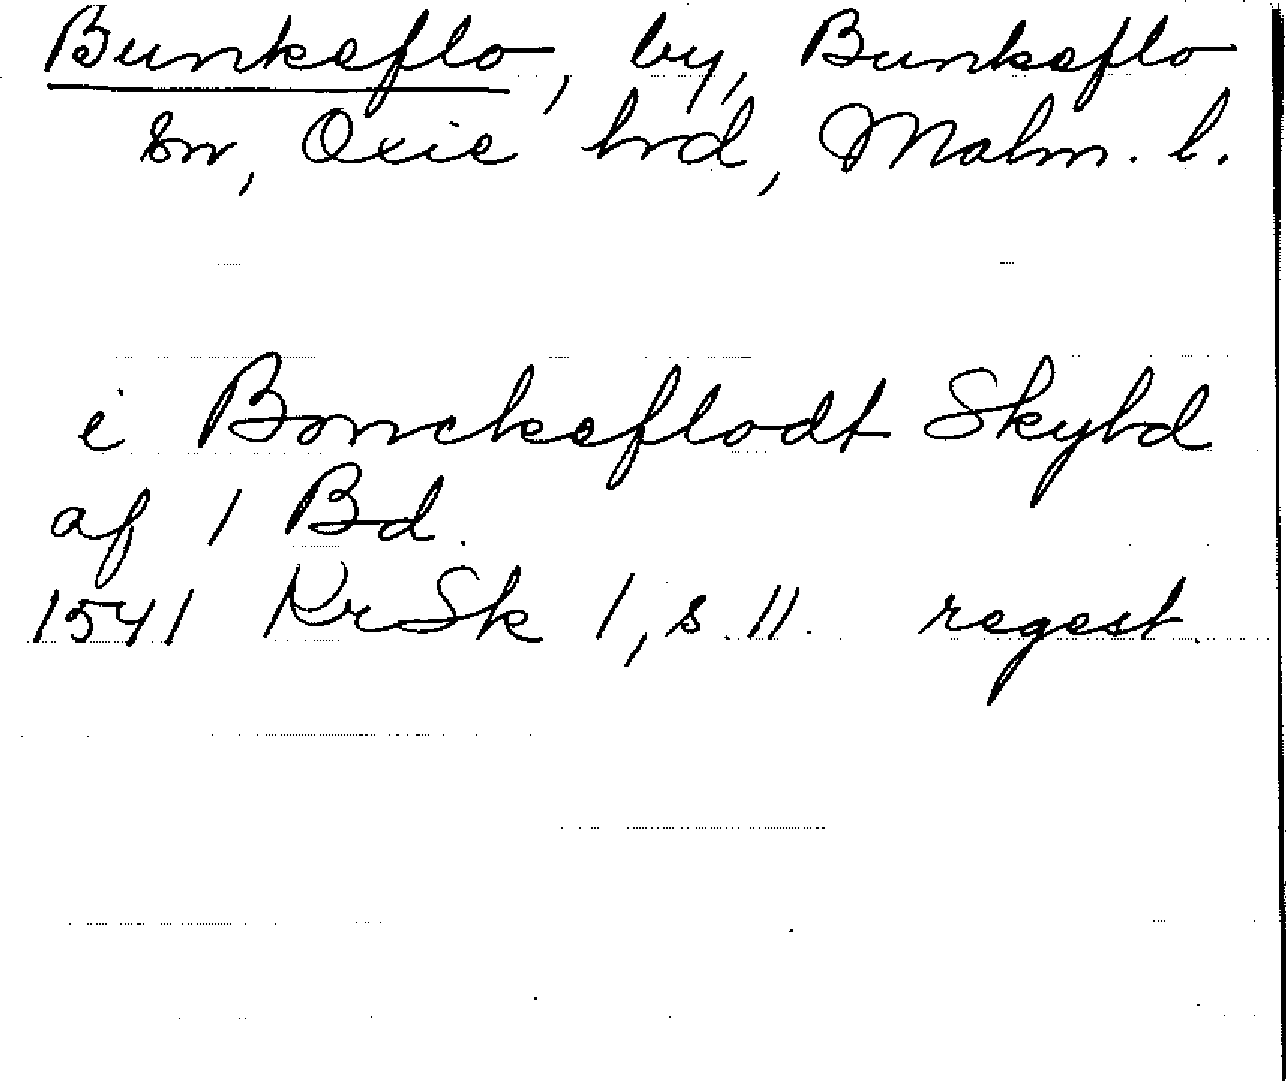 Bunkeflo, by, Bunkeflo
sn, Oxie hrd, Malm. l.
i Bonckeflodt Skyhd
af 1 Bd.
1541 KrSk 1, s. 11. regest.